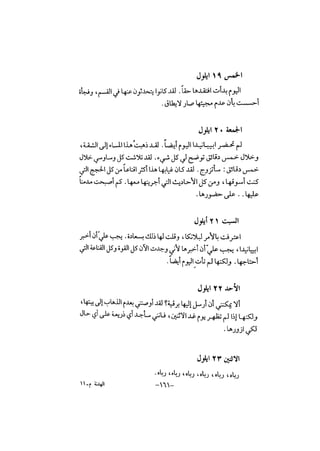 الخمس ١٩ ايلول
اليوم بدأت افتقدها حقاً. لقد كانوا يتحدثون عنها في القسم، وفجأة
أحسست بأن عدم مجيئها صار لايطاق.
الجمعة ٢٠ ايلول
لم تحضر ابيبانيدا اليوم أيضاً. لقد ذهبت هذا المساء إلى الشقة،
وخلال خمس دقائق توضح لي كل شيء. لقد تلاشت كل وساوسي خلال
خمس دقائق: سأتزوج. لقد كان غيابها هذا أكثر اقناعاً من كل الحجج التي
كنت أسوقها، ومن كل الأحاديث التي أجريتها معها. كم أصبحت مدمناً
عليها.. على حضورها.
السبت ٢١ أيلول
اعترفت بالأمر لبلانكا، وقلت لها ذلك بسعادة. يجب علي أن أخبر
ابيبانيدا، يجب علي أن أخبرها لأني وجدت الآن كل القوة وكل القناعة التي
أحتاجها. ولكنها لم تأت اليوم أيضاً.
الأحد ٢٢ ايلول
ألا يمكنني أن أرسل إليها برقية؟ لقد أوصتني بعدم الذهاب إلى بيتها،
ولكنها إذا لم تظهر يوم غد الاثنين، فانني سأجد أي ذريعة على أي حال
لكي ازورها.
الاثنين ٢٣ ايلول
رباه، رباه، رباه، رباه، رباه، رباه.
-١٦١-
الهدنة م-١١